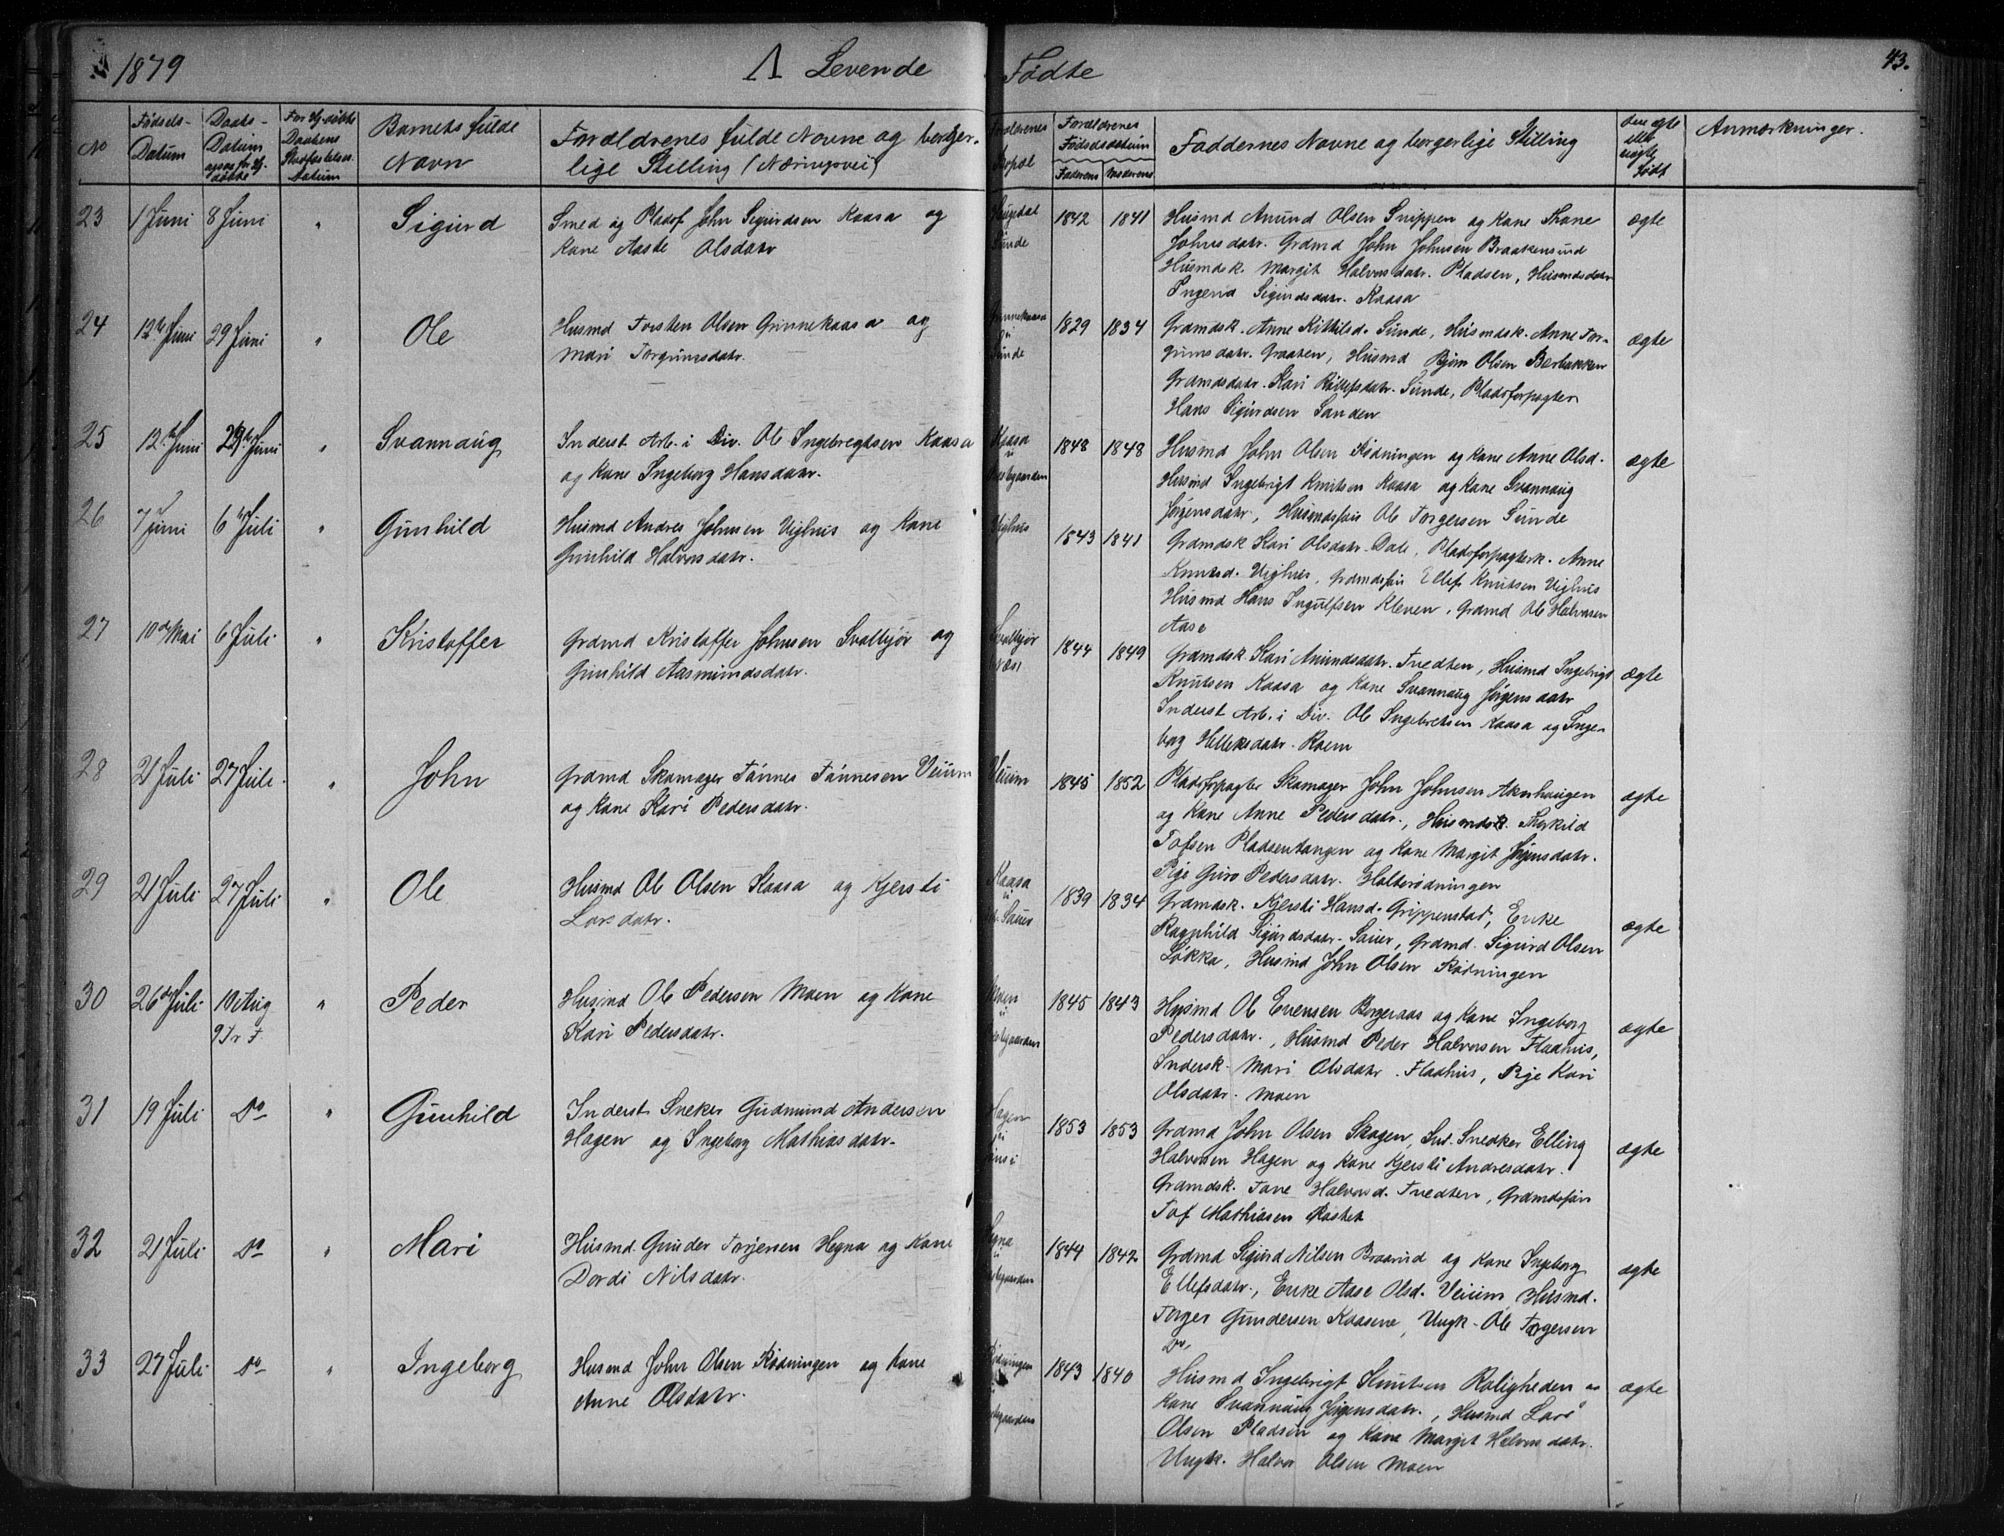 1879 A Levende Fødte 43.
No
Fødsels-Datum
Daabs-Datum
Barnets fulde Navn
Forældrenes fulde Navne og borger-
lige Stilling (Næringsvei)
Forældrenes
Bopæl
Forældrenes Fødselsdatum
Faderens Moderens
Faddernes Navne og borgerlige Stilling
Om ægte eller uægte født
Anmærkninger.
23 1 Juni 8 Juni " Sigurd
Smed og Pladsf John Sigurdsen Kaasa og
Kone Aaste Olsdatr
Sunde
1842 1841
Husmd Amund Olsen Snippen og Kone
Johnsdatr. Grdmd John Johnsen Braakensund
Husmdsk. Margit Halvorsdatr. Pladsen, Husmdsdatr
Ingerid Sigurdsdatr. Kaasa
ægte
24 12te Juni 29 Juni " Ole
Husmd Torsten Olsen Grinnekaasa og
Mari Torgrimsdatr.
Grinnekaasa
i
Sunde
1829 1834
Grdmdsk. Anne Kittilsd. Sunde, Husmdsk. Anne Tor-
grimsdatr. Graaten, Husmd Bjørn Olsen Berbakken
Grdmdsdatr. Kari Rollefsdatr. Sunde, Pladsforpagter
Hans Sigurdsen Sanden
ægte
25 12te Juni 29de Juni " Svannaug
Inderst Arb. i Div. Ole Ingebregtsen Kaasa
og Kone Ingeborg Hansdatr.
Kaasa
u
Prestegaarden
1848 1848
Husmd John Olsen Rødningen og Kone Anne Olsd.
Husmd Ingebrigt Knutsen Kaasa og Kone Svannaug
Jørgensdatr, Husmdsføir Ole Torgersen Sunde
ægte
26 7 Juni 6te Juli " Gunhild
Husmd Andres Johnsen Vighus og Kone
Gunhild Halvorsdatr.
Vighus
1843 1841
Grdmdsk Kari Olsdatr. Dale, Pladsforpagterk. Anne
Knutsd. Vighus, Grdmdsføir Ellef Knutsen Vighus
Husmd Hans Ingulfsen Kleven, Grdmd Ole Halvorsen
Aase
27 10de Mai 6 Juli " Kristoffer
Grdmd Kristoffer Johnsen Svalbjør og
Gunhild Aasmundsdatr.
Svalbjør
1844 1849
Grdmdsk. Kari Amundsdatr. Tvedten, Husmd Ingebrigt
Knutsen Kaasa og Kone Svannaug Jørgensdatr
Inderst Arb. i Div. Ole Ingebretsen Kaasa og Inge-
borg Helleksdatr. Roem
ægte
28 21 Juli 27 Juli. " John
Grdmd Skomager Tønnes Tønnesen Veium
og Kone Kari Pedersdatr.
Veium
1845 1852
Pladsforpagter Skomager John Johnsen Akerhaugen
og Kone Anne Pedersdatr., Husmdsk. Thorkild
Tofsen Pladsentangen og Kone Margit Jørgensdatr.
Pige Guro Pedersdatr. Holterødningen
ægte
29 21 Juli 27 Juli " Ole
Husmd Ole Olsen Kaasa og Kjersti
Larsdatr.
Kaasa
u
Sauer
1839 1834
Grdmdsk. Kjersti Hansd. Grippenstad, Enke
Ragnhild Sigurdsdatr. Sauer, Grdmd. Sigurd Olsen
Løkka, Husmd John Olsen Rødningen
ægte
30 26de Juli 10 Aug " Peder
9 Tr F
Husmd Ole Pedersen Moen og Kone
Kari Pedersdatr.
Moen
u
Prestegaarden
1845 1843
Husmd Ole Evensen Borgeraas og Kone Ingeborg
Pedersdatr., Husmd Peder Halvorsen Fladhus,
Indersk. Mari Olsdatr. Fladhus, Pige Kari
Olsdatr. Moen
ægte
31 19 Juli Do " Gunhild
Inderst Sneker Gudmund Andersen
Hagen og Ingeborg Mathiasdatr.
Hagen
1853 1853
Grdmd John Olsen Skogen, Ind. Snedker Elling
Halvorsen Hagen og Kone Kjersti Andresdatr.
Grdmdsk. Tone Halvorsd. Tvedten, Grdmdsføir
Tof Mathiasen
ægte
32 21 Juli Do " Mari
Husmd. Gunder Torjersen Hegna og Kone
Dordi Nilsdatr.
Hegna
u
Prestegaarden
1844 1842
Grdmd Sigurd Nilsen Braarud og Kone Ingeborg
Ellefsdatr., Enke Aase Olsd. Veium, Husmd.
Torger Gundersen Kaasene, Ungk. Ole Torgersen
Do.
ægte
33 27 Juli Do " Ingeborg
Husmd John Olsen Rødningen og Kone
Anne Olsdatr.
Rødningen
u
Prestegaarden
1843 1840
Husmd Ingebrigt Knutsen Roligheden og
Kone Svannaug Jørgensdatr., Husmd Lars
Olsen Pladsen og Kone Margit Halvorsdatr.
Ungk. Halvor Olsen Moen
ægte